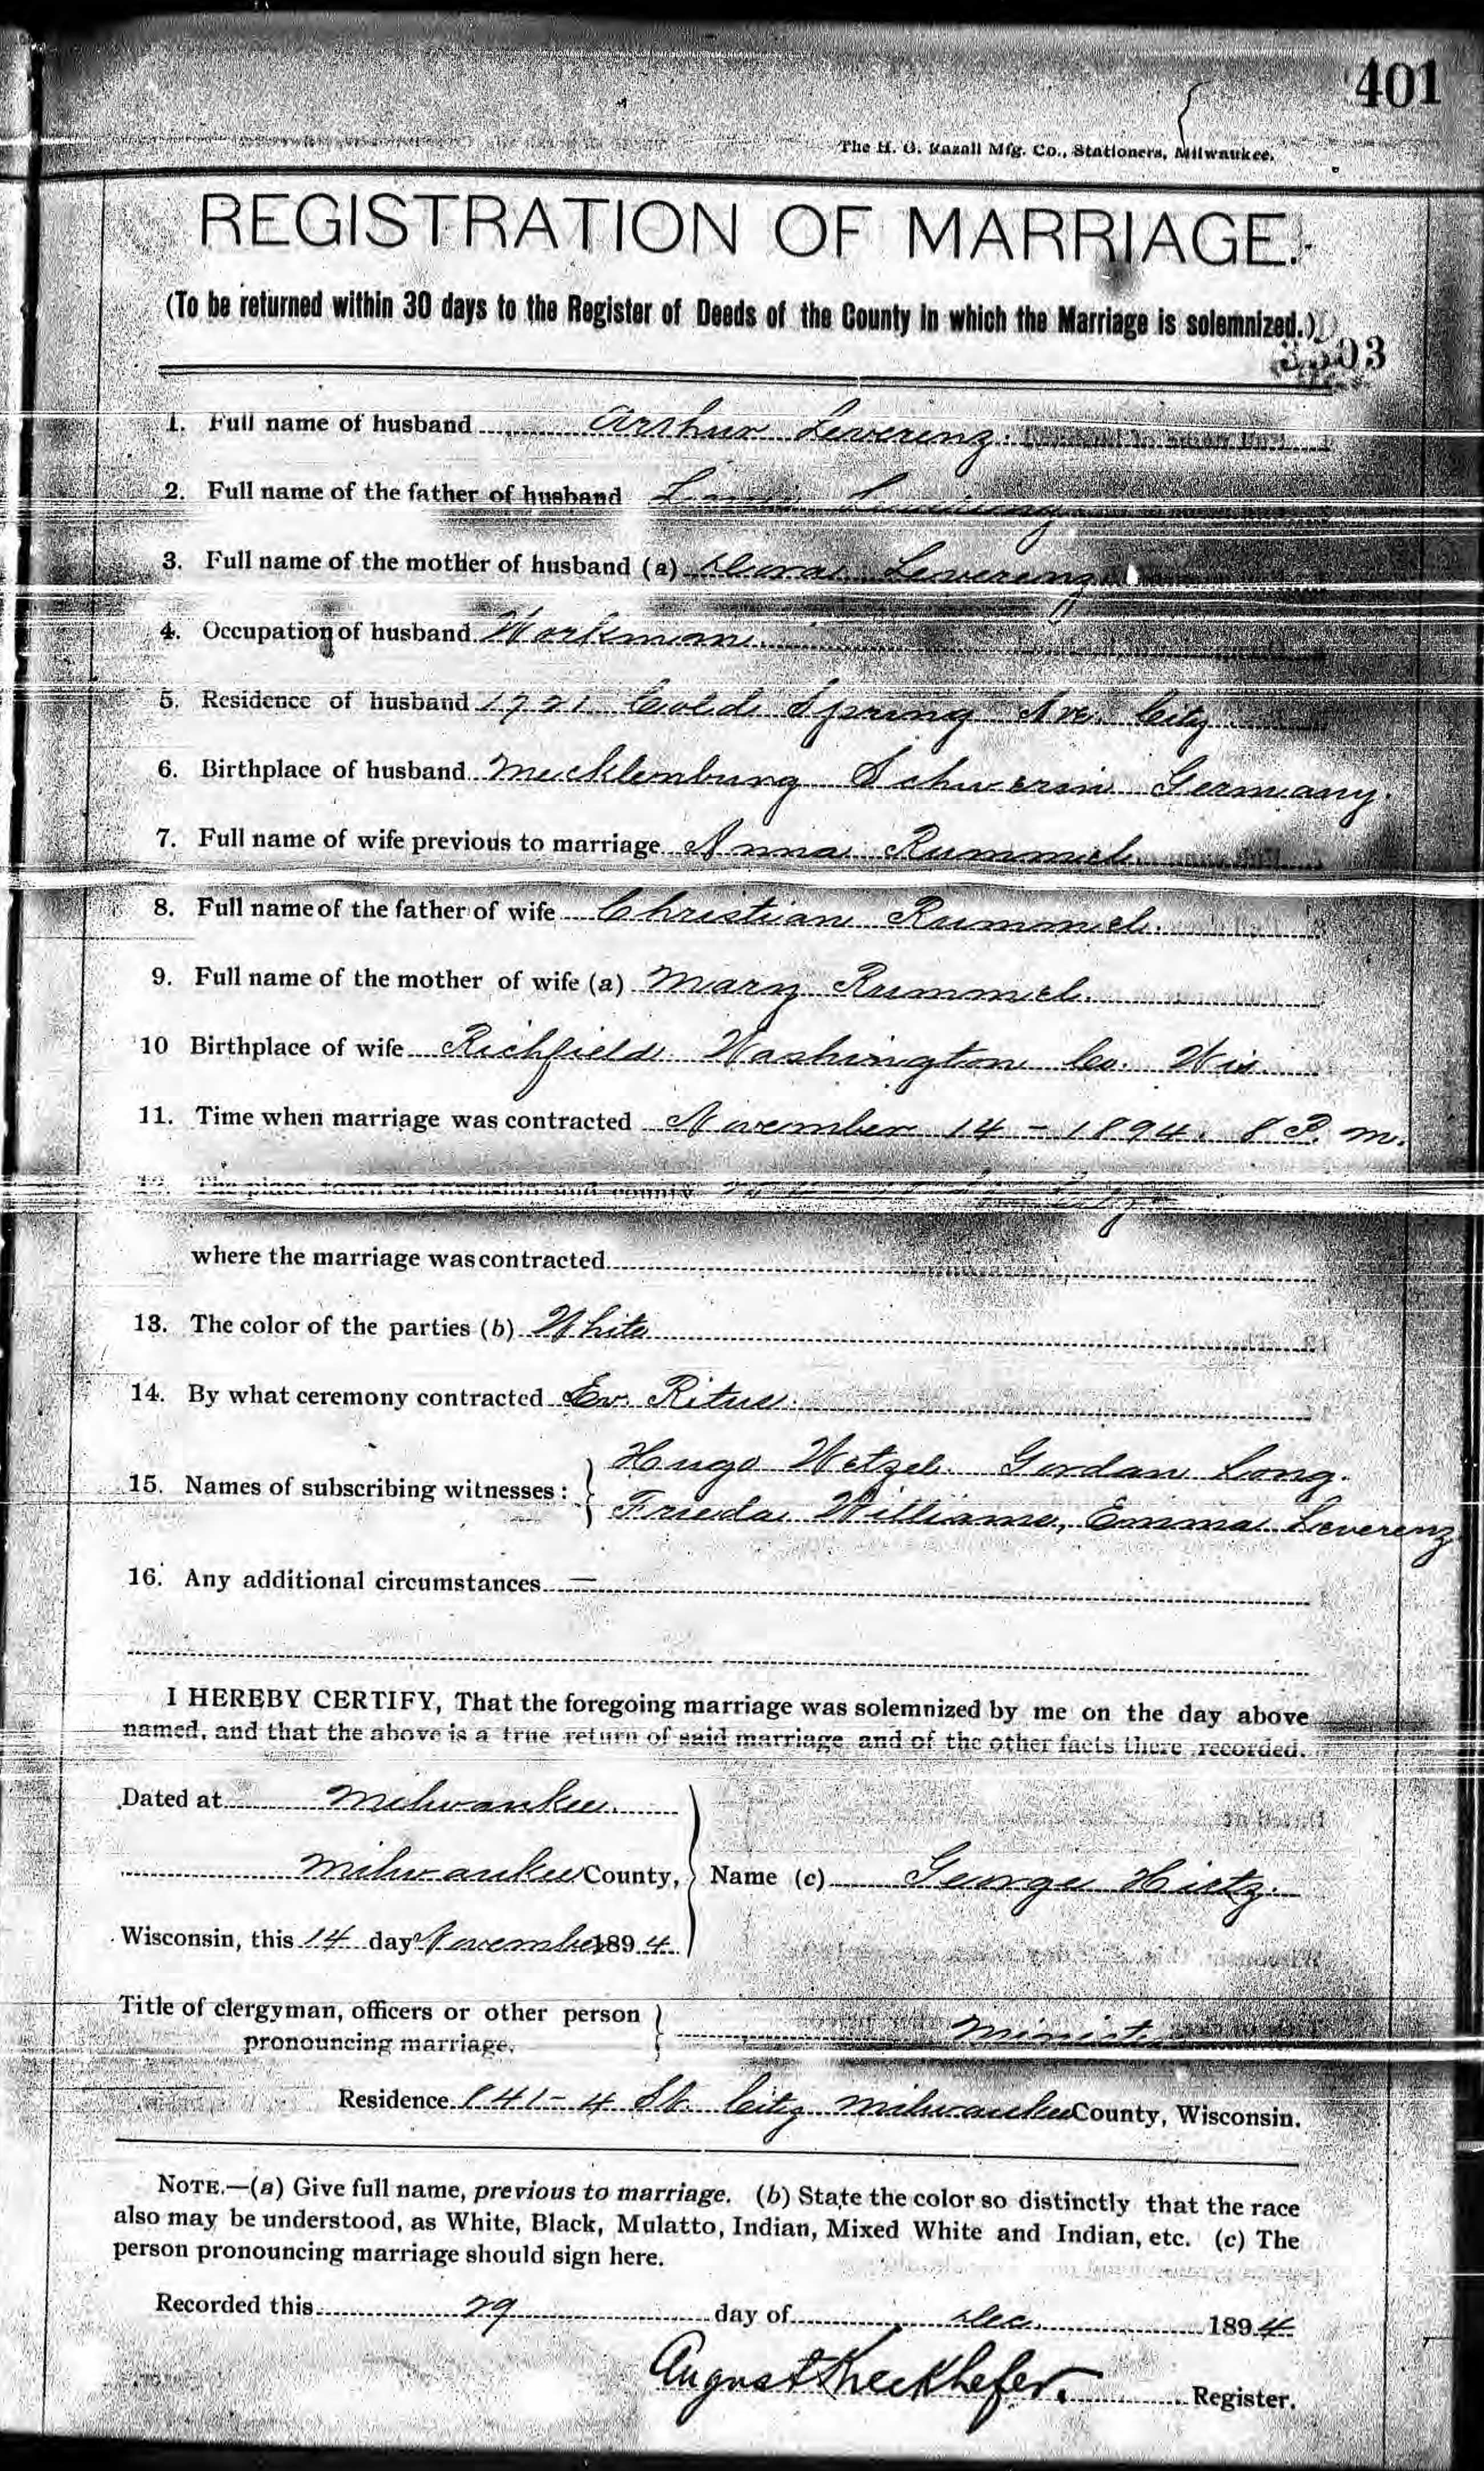 401
The H. G. Razall Mfg. Co., Stationers, Milwaukee.
REGISTRATION OF MARRIAGE.
(To be returned within 30 days to the Register of Deeds of the County in which the Marriage is solemnized.)
3503
1. Full name of husband Arthur Leverenz.
2. Full name of the father of husband Leverenz
3. Full name of the mother of husband (a) Dora Leverenz
4. Occupation of husband Workman.
5. Residence of husband 1721 Cold Spring Ave. City
6. Birthplace of husband Mecklemburg Schwerin Germany.
7. Full name of wife previous to marriage Anna Rummel
8. Full name of the father of wife Christian Rummel.
9. Full name of the mother of wife (a) Mary Rummel.
10 Birthplace of wife Richfield Washington Co. Wis
11. Time when marriage was contracted November 14 - 1894. 8 P. m.
12. The place, town or township and county City
where the marriage was contracted
13. The color of the parties (b) White
14. By what ceremony contracted Ev. Ritus.
15. Names of subscribing witnesses: Hugo Wetzel. Gordan Long.
Frieda Williams, Emma Leverenz
16. Any additional circumstances —
I HEREBY CERTIFY, That the foregoing marriage was solemnized by me on the day above
named, and that the above is a true return of said marriage and of the other facts there recorded.
Dated at Milwaukee.
Milwaukee County, Name (c) George Hirtz.
Wisconsin, this 14 day November 1894.
Title of clergyman, officers or other person
pronouncing marriage. Minister
Residence 841-4 St. City Milwaukee County, Wisconsin.
NOTE.—(a) Give full name, previous to marriage. (b) State the color so distinctly that the race
also may be understood, as White, Black, Mulatto, Indian, Mixed White and Indian, etc. (c) The
person pronouncing marriage should sign here.
Recorded this 29 day of Dec. 1894.
August Kieckhefer. Register.